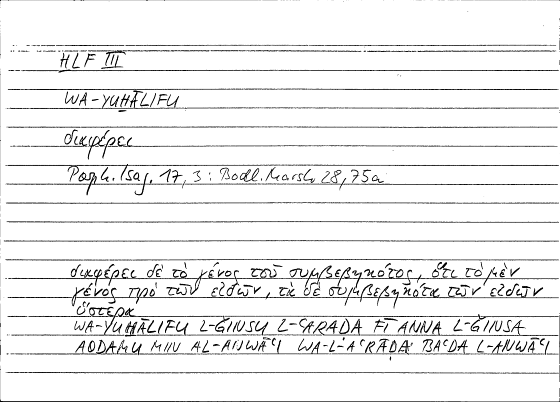 HLF III
WA-YUḪĀLIFU
διαφέρει
Porph. Isag. 17, 3 : Bodl. Marsh 28, 75a
διαφέρει δὲ τὸ γένος τοῦ συμβεβηκότος, ὅτι τὸ μὲν
γένος πρὸ τῶν εἰδῶν, τὰ δὲ συμβεβηκότα τῶν εἰδῶν
ὕστερα
WA-YUḪĀLIFU L-ǦINSU L-ʿARAḌA FĪ ANNA L-ǦINSA
AQDAMU MIN AL-ANWĀʿI WA-L-AʿRĀḌA BAʿDA L-ANWĀʿI